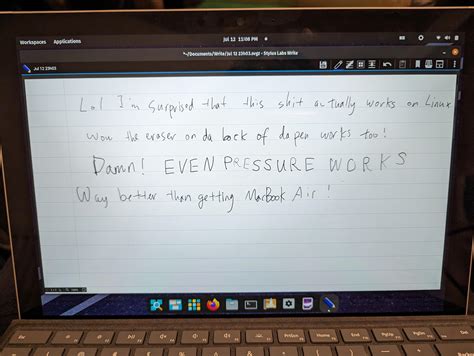 Workspaces Applications
Jul 12 11:08 PM
~/Documents/Write/Jul 12 23h03.svgz - Stylus Labs Write
Jul 12 23h03
Lol I'm surprised that this shit actually works on Linux
Wow the eraser on da back of da pen works too!
Damn! EVEN PRESSURE WORKS
Way better than getting MacBook Air!
PrtScn Home End PgUp PgDn